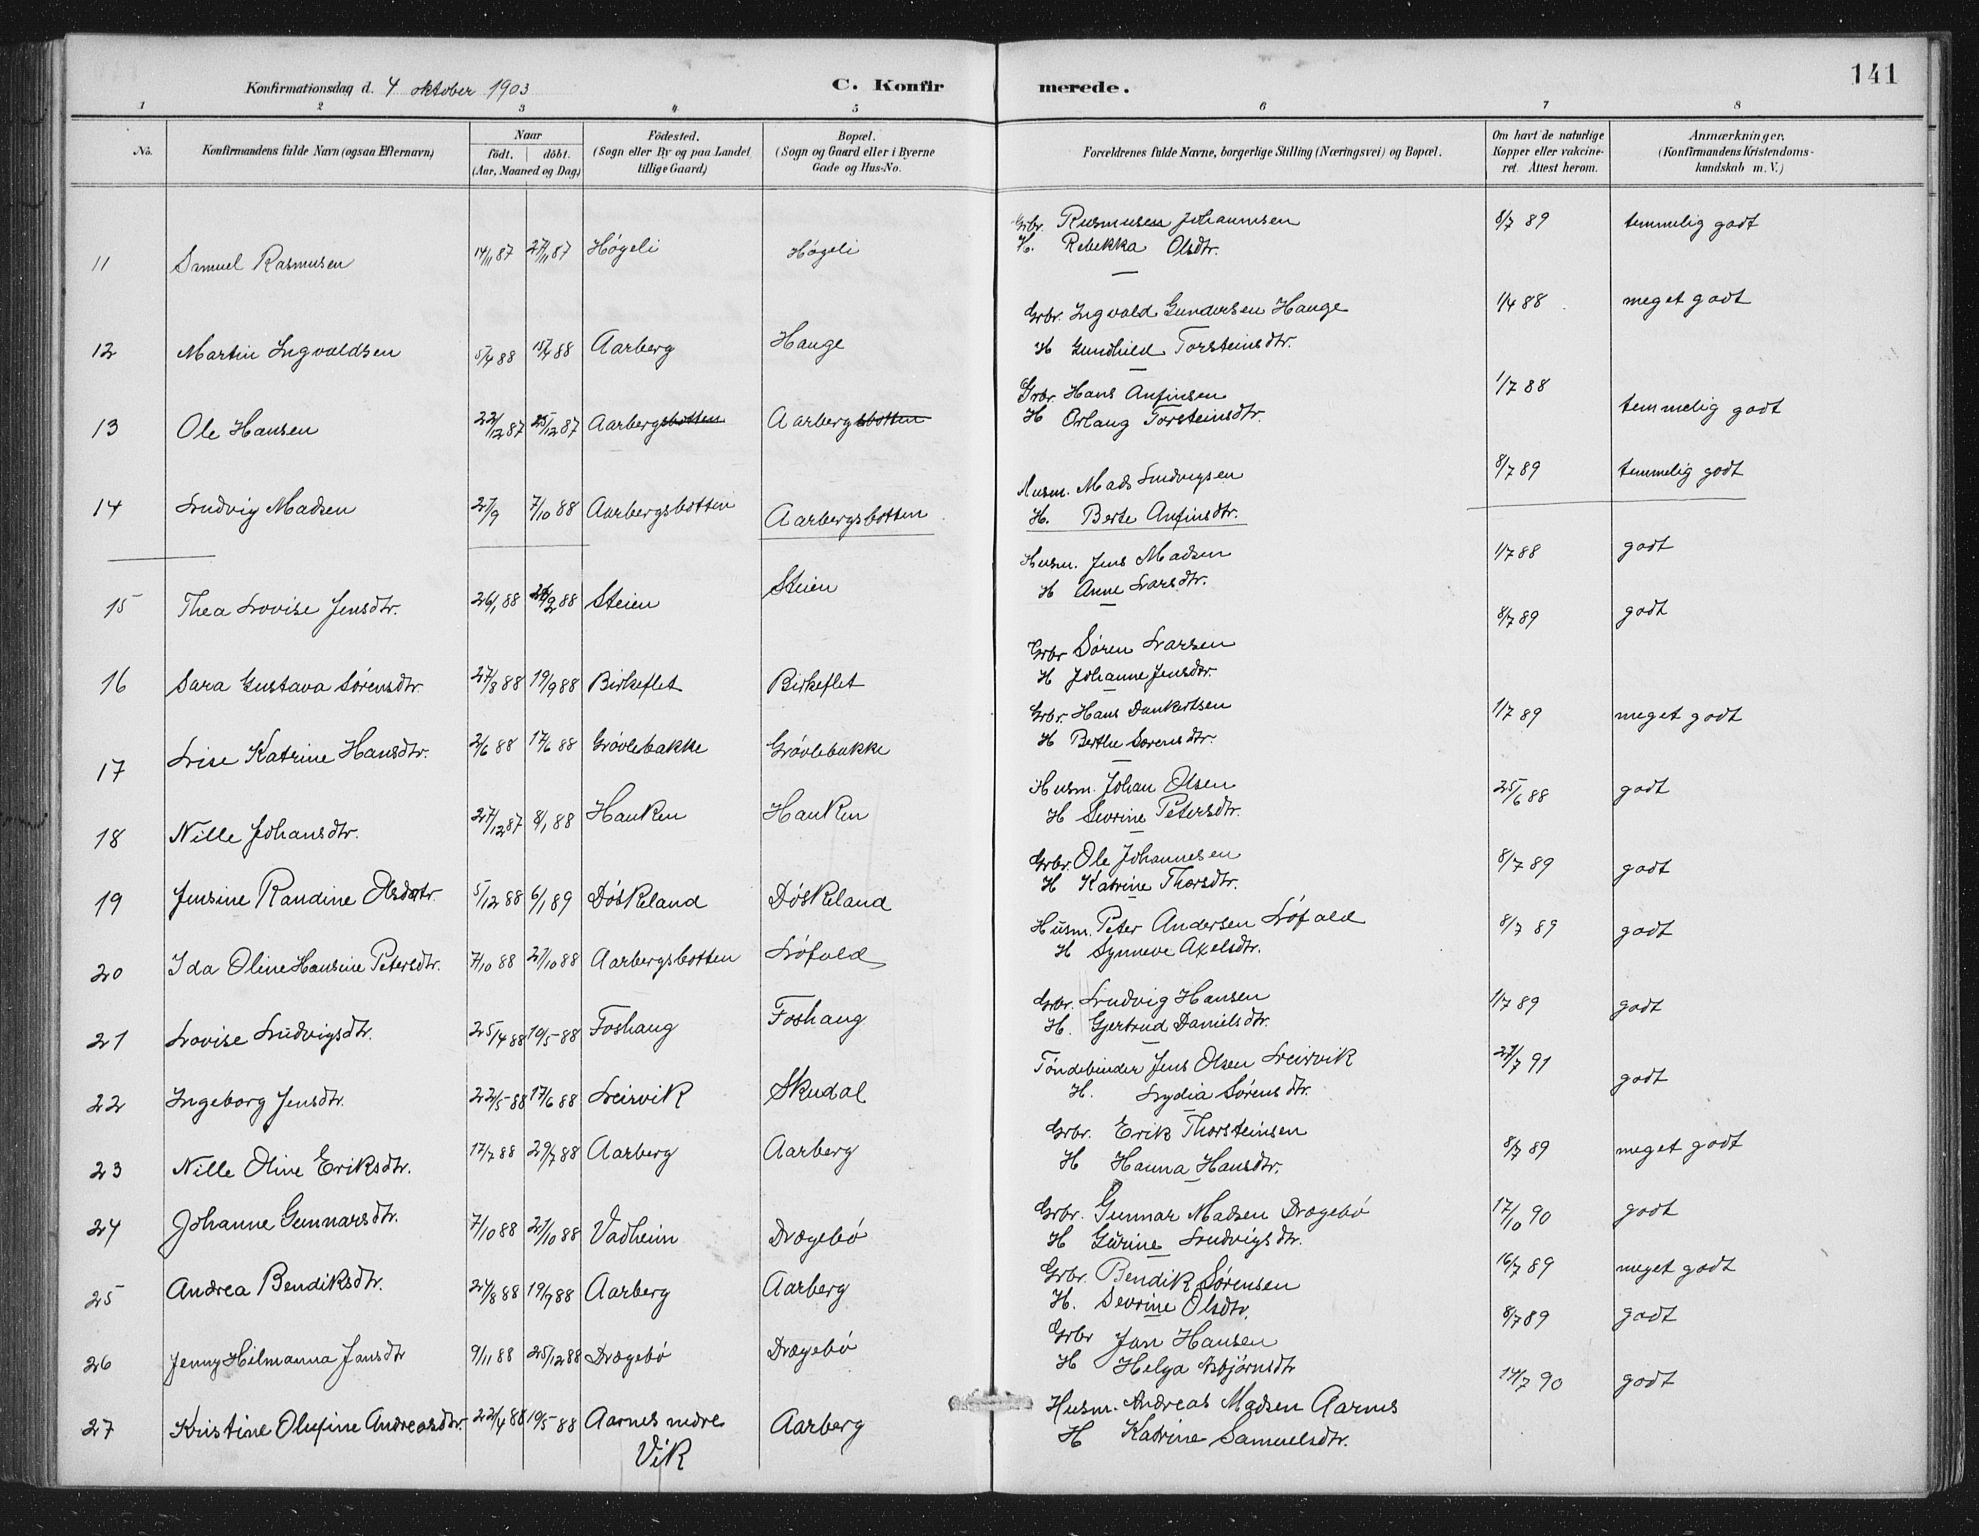 141
Konfirmationsdag d. 4 oktober 1903
C. Konfirmerede.
1 2 3 4 5 6 7 8
No.
Konfirmandens fulde Navn (ogsaa Efternavn)
Naar
födt. | döbt.
(Aar, Maaned og Dag)
Födested.
(Sogn eller By og paa Landet
tillige Gaard)
Bopæl.
(Sogn og Gaard eller i Byerne
Gade og Hus-No.
Forældrenes fulde Navne, borgerlige Stilling (Næringsvei) og Bopæl.
Om havt de naturlige
Kopper eller vakcine-
ret. Attest herom.
Anmærkninger.
(Konfirmandens Kristendoms-
kundskab m. V.)
11 Samuel Rasmusen 14/11 87 27/11 87 Høgeli Høgeli Grbr. Rasmusen Johannesen 8/7 89 temmelig godt
H. Rebekka Olsdtr.
12 Martin Ingvaldsen 5/4 88 15/4 88 Aarberg Hauge Grbr. Ingvald Gundersen Hauge 1/4 88 meget godt
H Gundhild Torsteinsdtr.
13 Ole Hansen 22/12 87 25/12 87 Aarbergsbotten Aarbergsbotten Grbr. Hans Anfinsen 1/7 88 temmelig godt
H Erlaug Torsteinsdtr.
14 Ludvig Madsen 27/9 7/10 88 Aarbergsbotten Aarbergsbotten Husm. Mads Ludvigsen 8/7 89 temmelig godt
H. Berte Anfinsdtr.
15 Thea Lovise Jensdtr. 26/1 88 26/2 88 Steien Steien Husm. Jens Madsen 1/7 88 godt
H Anne Larsdtr.
16 Sara Gustava Sørensdtr. 27/8 88 19/9 88 Birkeflet Birkeflet Grbr Søren Larsen 8/7 89 godt
H Johanne Jensdtr.
17 Lise Katrine Hansdtr. 2/6 88 17/6 88 Grøvlebakke Grøvlebakke Grbr. Hans Dankertsen 1/7 89 meget godt
H Berthe Sørensdtr.
18 Nille Johansdtr. 27/12 87 8/1 88 Hauken Hauken Husm. Johan Olsen 25/6 88 godt
H Sevrine Petersdtr.
19 Jensine Randine Olsdtr. 5/12 88 6/1 89 Døskeland Døskeland Grbr. Ole Johannesen 8/7 89 godt
H Katrine Thorsdtr.
20 Ida Oline Hansine Petersdtr. 7/10 88 21/10 88 Aarbergsbotten Løfald Husm. Peter Andersen Løfald 8/7 89 godt
H Synneve Axelsdtr.
21 Lovise Ludvigsdtr. 25/4 88 19/5 88 Foshaug Foshaug Grbr. Ludvig Hansen 1/7 89 godt
H. Gjertrud Danielsdtr.
22 Ingeborg Jensdtr. 22/5 88 17/6 88 Leirvik Skudal Tøndebinder Jens Olsen Leirvik 27/7 91 godt
H. Lydia Sørensdtr.
23 Nille Oline Eriksdtr. 17/7 88 29/7 88 Aarberg Aarberg Grbr. Erik Thorsteinsen 8/7 89 meget godt
H Hanna Hansdtr.
24 Johanne Gunnarsdtr. 7/10 88 21/10 88 Vadheim Drægebø Grbr. Gunnar Madsen Drægebø 17/10 90 godt
H Gurine Ludvigsdtr.
25 Andrea Bendiksdtr. 27/8 88 19/9 88 Aarberg Aarberg Grbr. Bendik Sørensen 16/7 89 meget godt
H. Sevrine Olsdtr.
26 Jenny Hilmanna Jansdtr 9/11 88 25/12 88 Drægebø Drægebø Grbr Jan Hansen 8/7 89 godt
H Helga Asbjørnsdtr
27 Kristine Olufine Andreasdtr. 22/4 88 19/5 88 Aarnes nedre Aarberg Husm. Andreas Madsen Aarnes 14/7 90 godt
Vik H Katrine Samuelsdtr.